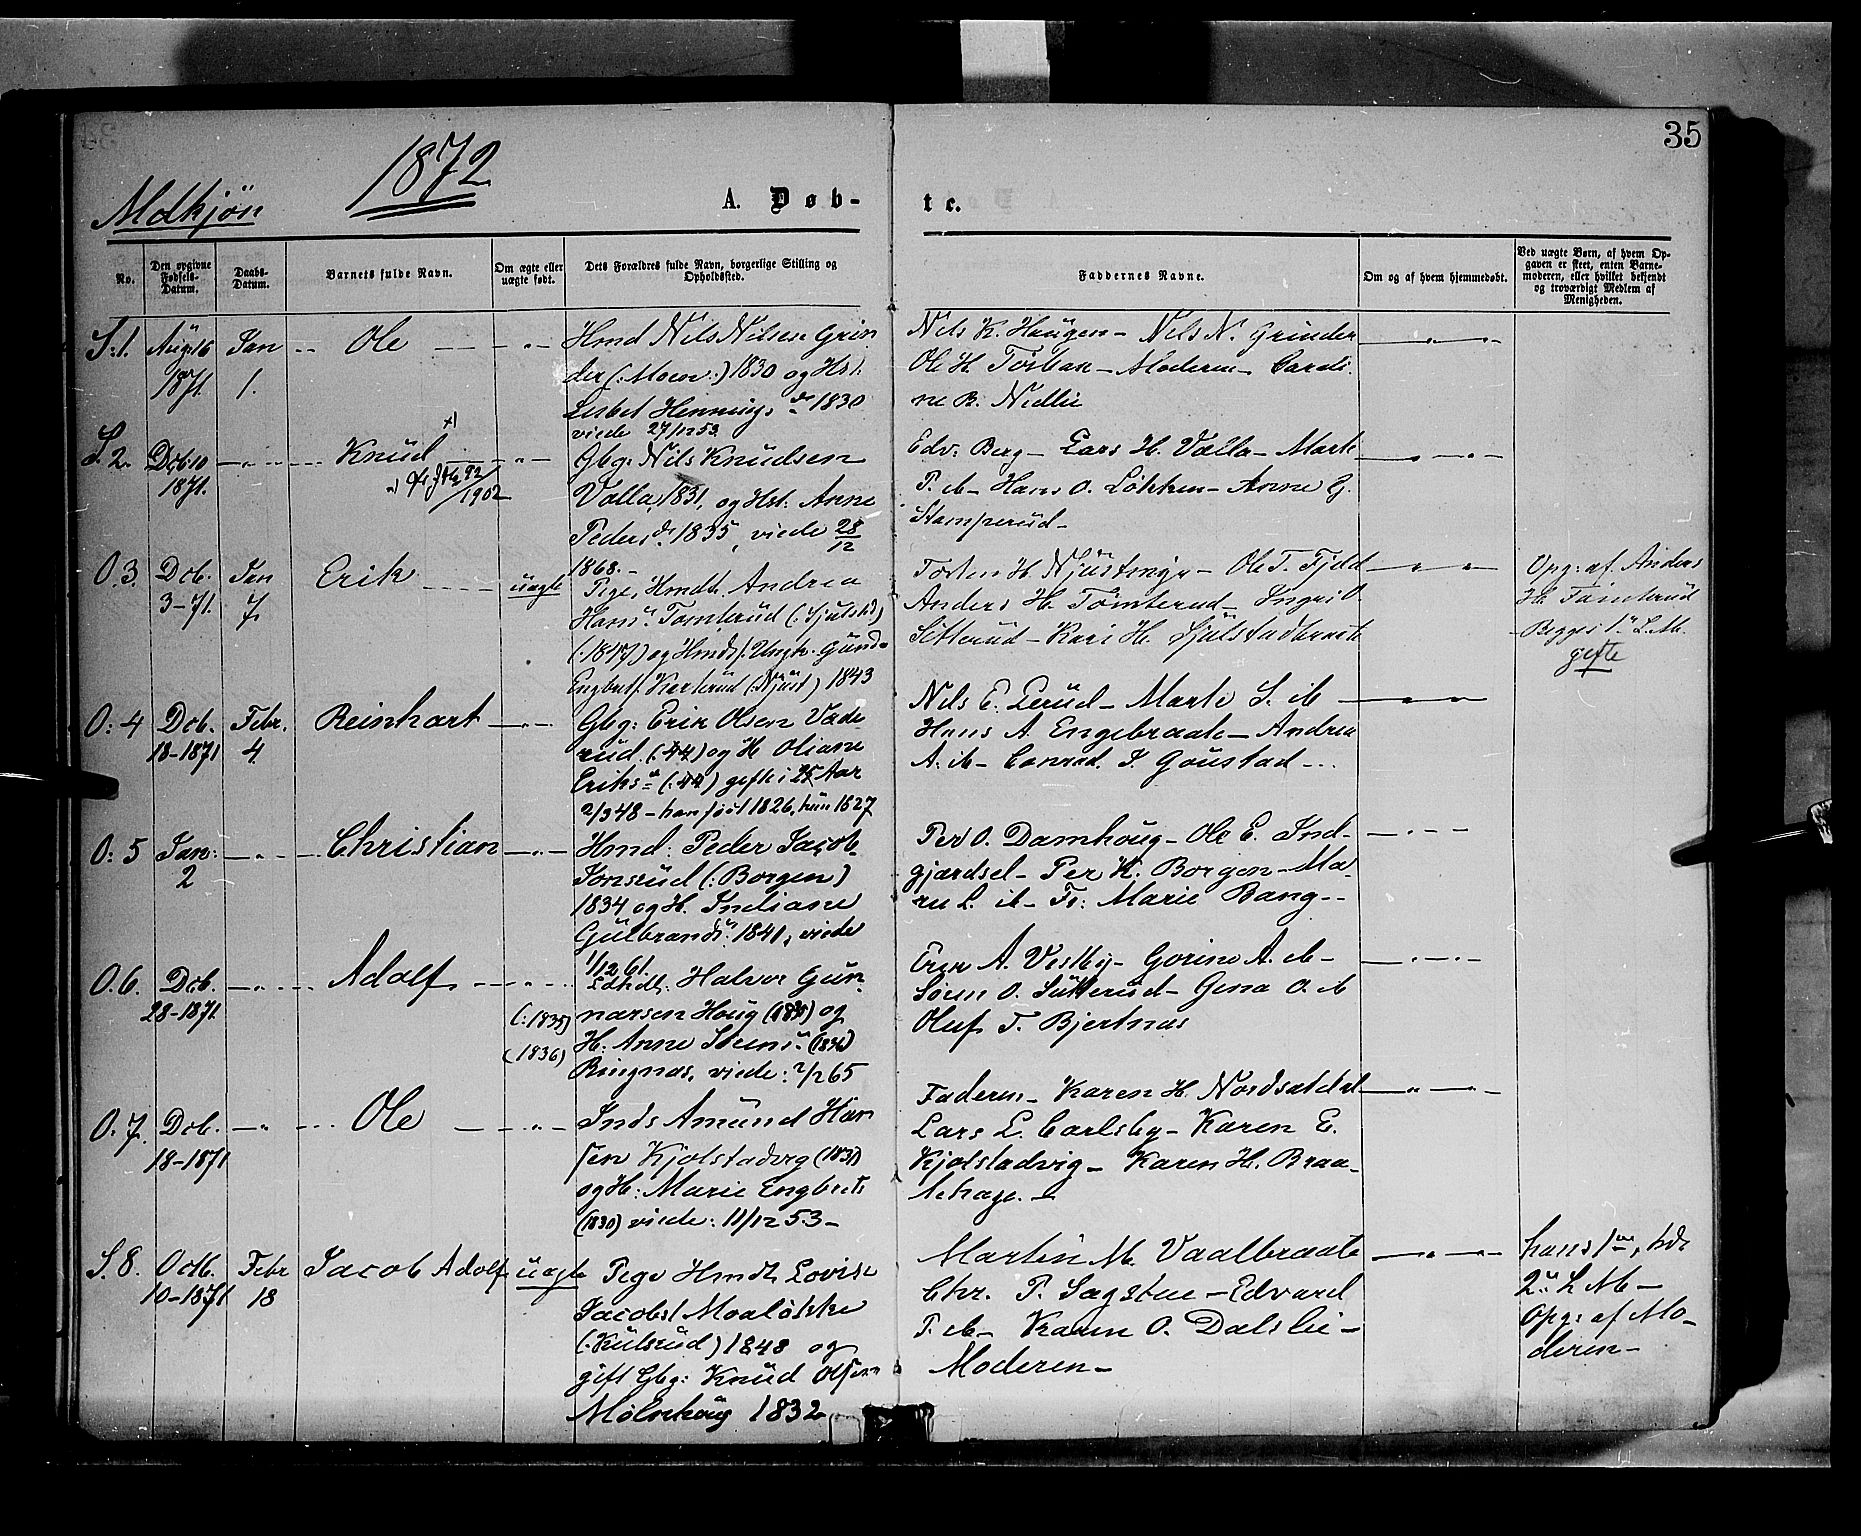 35
1872
Mdkjön
A. Døb-
te.
No.
Den opgivne Fødsels-Datum.
Daabs-Datum.
Barnets fulde Navn.
Om ægte eller uægte født.
Dets Forældres fulde Navn, borgerlige Stilling og Opholdssted.
Faddernes Navne.
Om og af hvem hjemmedøbt.
Ved uægte Børn, af hvem Opgaven er skeet, enten Barnemoderen, eller hvilket bekjendt og troværdigt Medlem af Menigheden.
S. 1. Aug 16 1871. Jan 1. Ole
Hmd Nils Nilsen Grin
der (: Moen :) 1830 og Hst.
Lisbet Hennings d. 1830
viede 27/12 53.
Nils K. Haugen - Nils N. Grinder
Ole H. Tosban - Moderen - Caroli
ne B. Nidlie
S. 2. Dcb. 10 1871. Knud
/1902
Gbg: Nils Knudsen
Valla, 1831, og Hst: Anne
Peders d. 1835, viede 28/12
1868.-
Edv. Berg - Lars H. Valla - Marte
P. ib - Hans O. Løkken - Anne G.
Stamperud-
O. 3. Dcb. 3-71. Jan 7. Erik uægte
Pige, Hmdt. Andrea
Hans d. Tomterud (: Sjulstd)
(: 1847) og Hmds f. Ungk. Gund
Engbret f. Karterud (: Njust) 1843
Tosten H. Njustmyr - Ole T. Fjeld
Anders H. Tömterud - Ingri O.
Sitterud - Kari H. Sjulstadbraate
Opg: af Anders
H. Tömterud
Begges 1ste L.M.
gifte
O: 4 Dcb. 18-1871 Febr. 4. Reinhart
Gbg: Erik Olsen Vade
rud. (: 44) og H. Oliane
Eriks d. (: 44) gifte i 25 Aar
2/3 48 - han født 1826, hun 1827
Nils E. Lerud - Marte S. ib -
Hans A. Engebraate - Andrea
A. ib - Conrad. J. Goustad -
O: 5 Jan: 2 Christian
Hmd: Peder Jacob
Jonsrud (: Borgen)
1834 og H. Indiane
Gulbrands d. 1841, viede
1/12 61.
Per O. Damhoug - Ole E. Ind-
gjærdsel - Per K. Borgen - Ma-
ru L. ib - Fr: Marie Bang -
O. 6. Dcb. 28-1871. Adolf
(: 1835)
(1836)
Halvor Gun-
narsen Houg (1835) og
H: Anne Iverns d. (1836)
Ringnæs, viede: 2/2 65
Erik A. Vestby - Gorine A. ib -
Søren O. Sutterud - Gena O. ib
Oluf T. Bjertnæs
O. 7. Dcb. 18-1871 Ole
Inds Amund Han
sen Kjolstadvig (1831)
og H: Marie Engbrets
(1830) viede: 11/12 53-
Faderen - Karen H. Nordsætdal
Lars L. Carlsby - Karen E.
Kjolstadvig - Karen H. Braa-
tehage. -
S. 8. Octb. 10-1871 Febr 18 Jacob Adolf uægte
Pige Hmdt. Lovise
Jacobs d. Moaløkke
(: Kulsrud) 1848 og
gift Gbg: Knud Olsen
Mølnehoug 1832
Martin M. Vaalbraate
Chr. P. Sagstue - Edvard
P. ib - Karen O. Dalslie -
Moderen -
hans 1ste, hd:
2den L M -
Opg: af Mo-
deren -